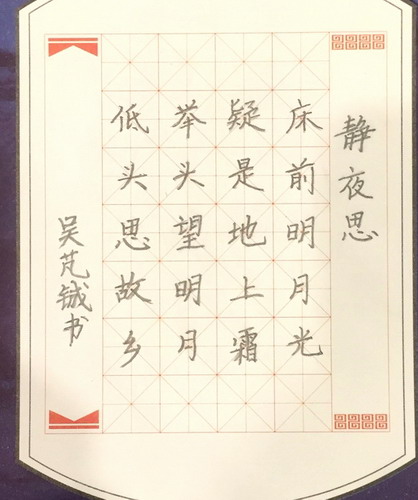 静夜思
床前明月光
疑是地上霜
举头望明月
低头思故乡
吴芃铖书